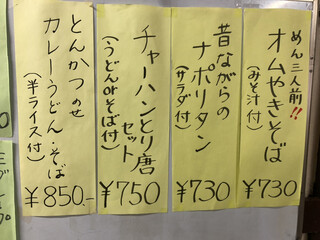 めん三人前!!
オムやきそば
(みそ汁付)
¥730
昔ながらの
ナポリタン
(サラダ付)
¥730
チャーハンとり唐
セット
(うどんorそば付)
¥750
とんかつのせ
カレーうどん・そば
(半ライス付)
¥850.-